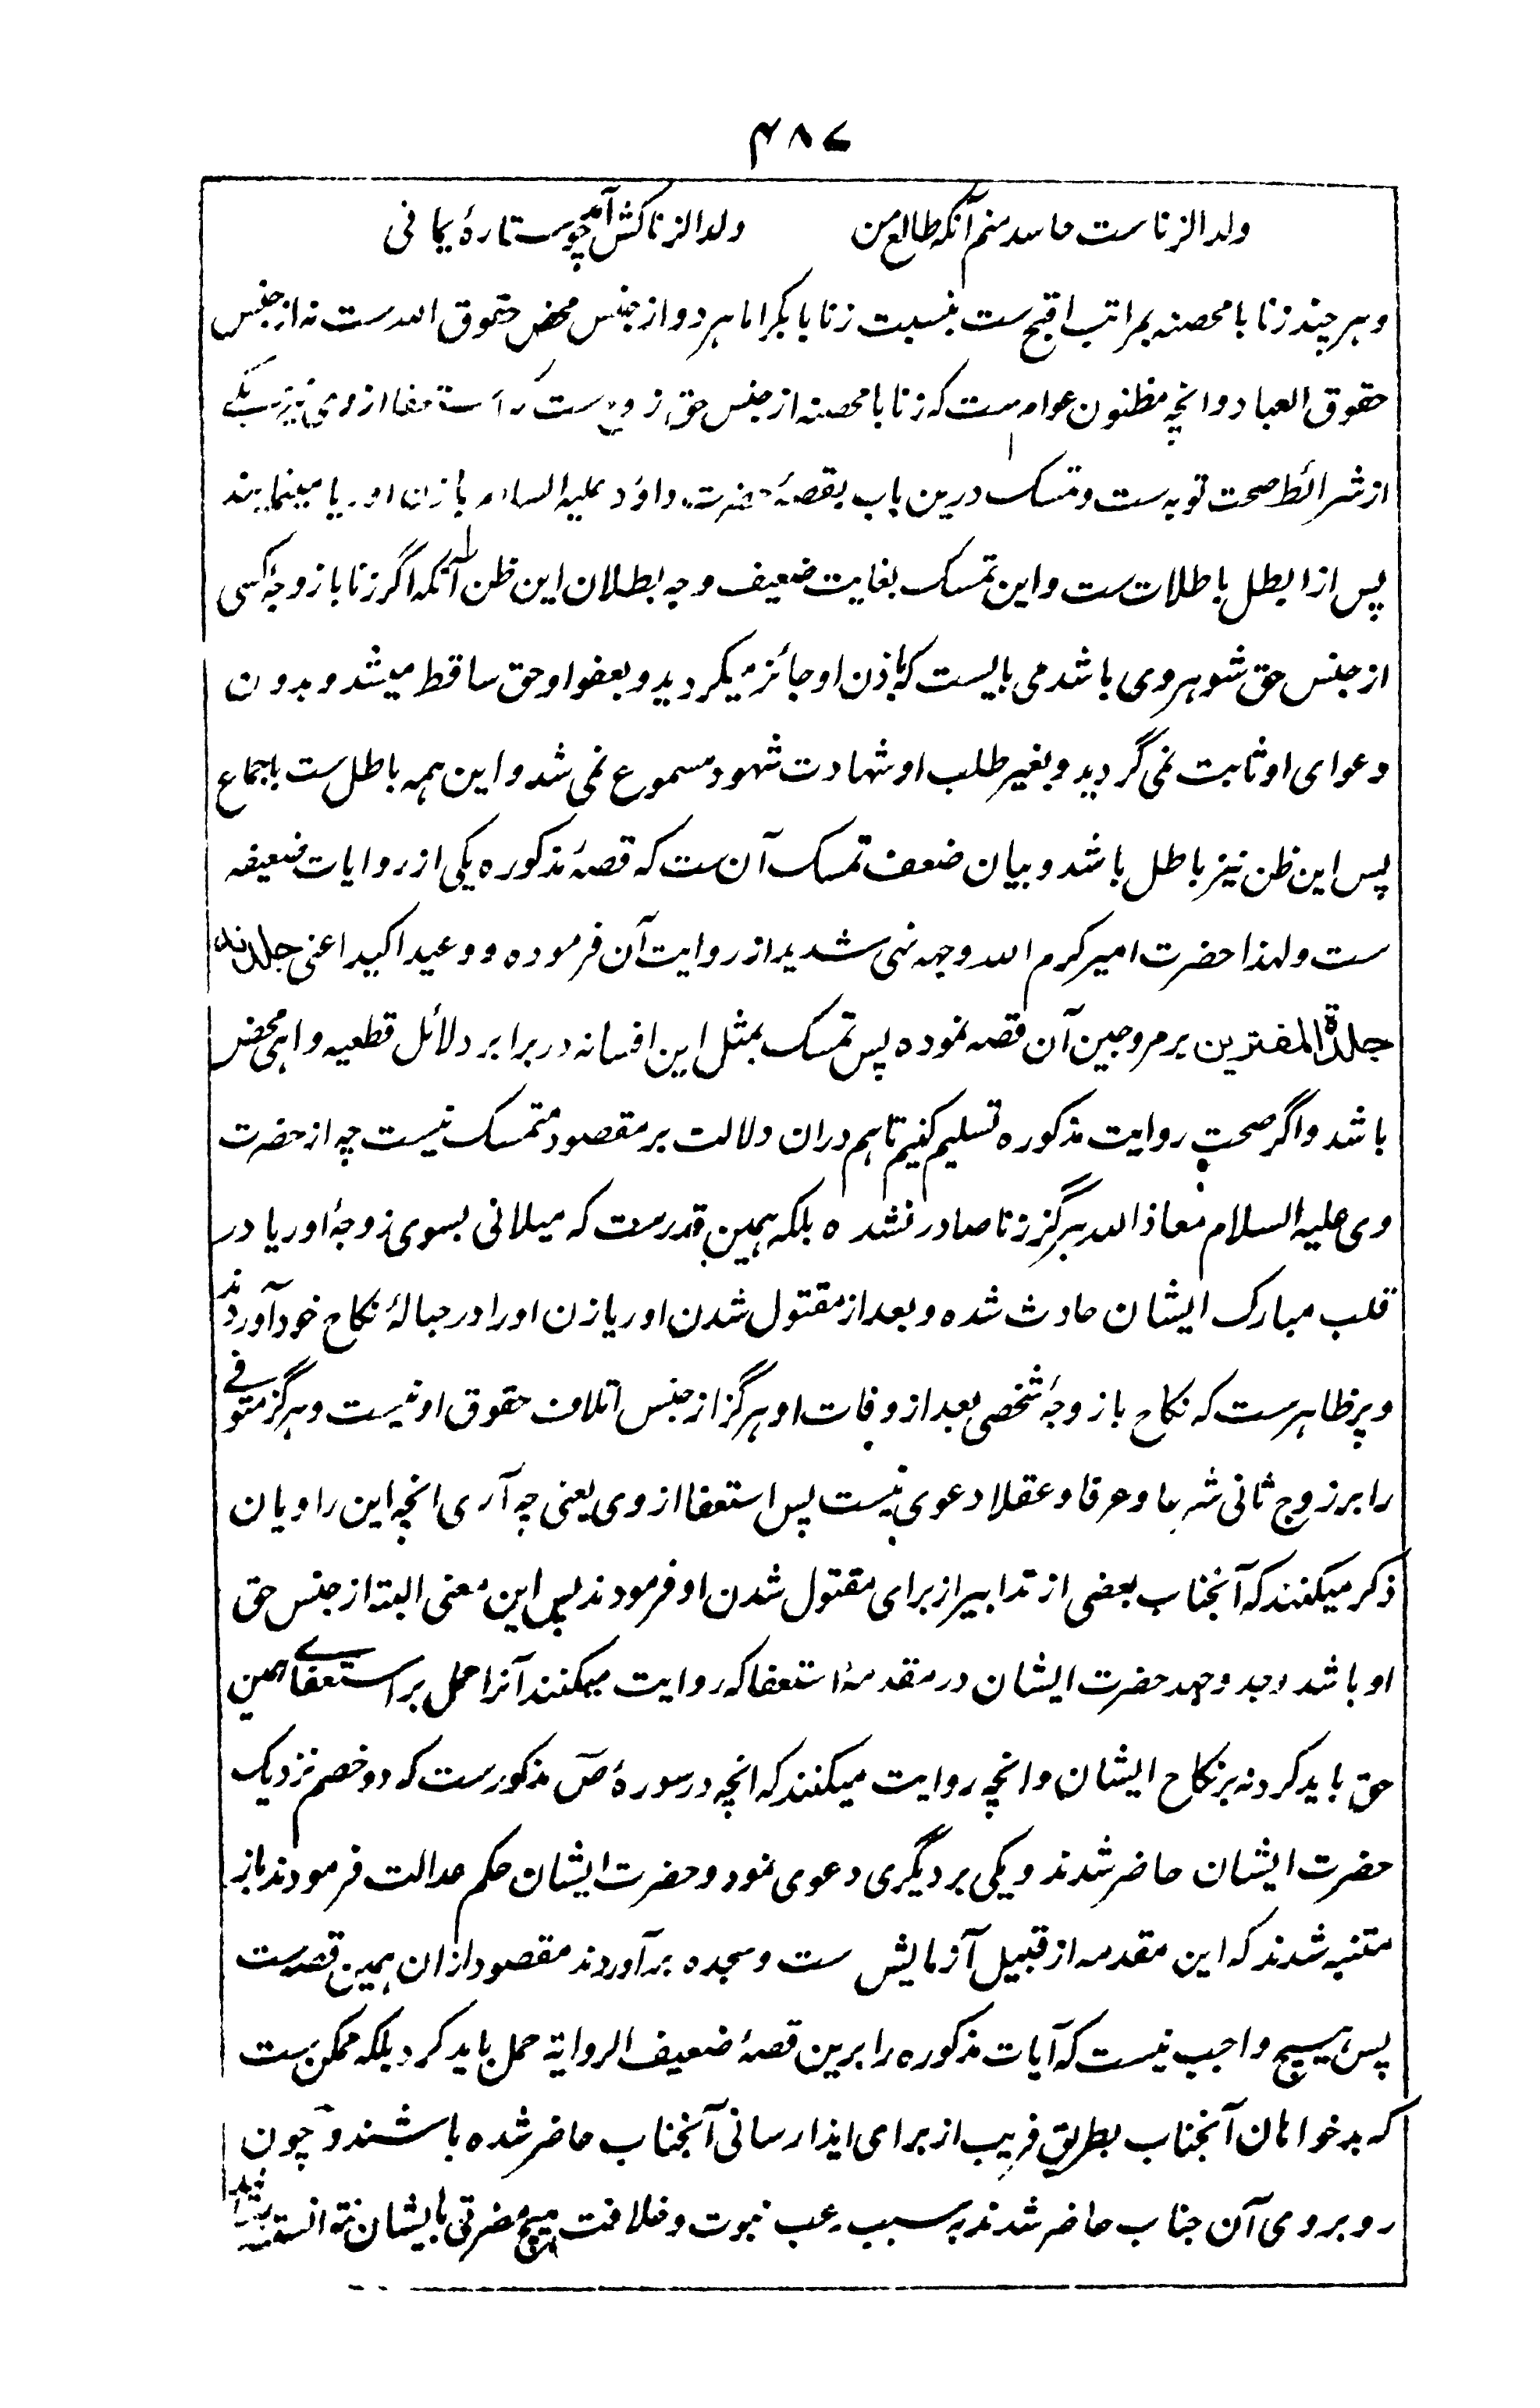 ۴۸۷
ولدالزناست حاسد منم آنکه طالع من ولدالزناکش آمد چو ستارهٔ یمانی
و هر چند زنا با محصنه بمراتب اقبح ست بنسبت زنا با بکر اما هر دو از جنس محض حقوق الله ست نه از جنس
حقوق العباد و انچه مظنون عوام ست که زنا با محصنه از جنس حق زوج ست که استعفا از وی نیز یکے
از شرائط صحت توبه ست و تمسک درین باب بقصهٔ حضرت داؤد علیه السلام با زن اوریا مینمایند
پس از ابطل باطلات ست و این تمسک بغایت ضعیف وجه بطلان این ظن آنکه اگر زنا با زوجهٔ کسی
از جنس حق شوهر وی باشد می بایست که باذن او جائز میگردید و بعفو او حق ساقط میشد و بدون
دعوای او ثابت نمی گردید و بغیر طلب او شهادت شهود مسموع نمی شد و این همه باطل ست باجماع
پس این ظن نیز باطل باشد و بیان ضعف تمسک آن ست که قصهٔ مذکوره یکی از روایات ضعیفه
ست و لهذا حضرت امیر کرم الله وجهه نهی شدید از روایت آن فرموده و وعید اکید اعنی جلدته
جلدة المفترین بر مروجین آن قصه نموده پس تمسک بمثل این افسانه در برابر دلائل قطعیه واهی محض
باشد و اگر صحت روایت مذکوره تسلیم کنیم تاهم دران دلالت بر مقصود متمسک نیست چه از حضرت
وی علیه السلام معاذ الله هرگز زنا صادر نشده بلکه همین قدرست که میلانی بسوی زوجهٔ اوریا در
قلب مبارک ایشان حادث شده و بعد از مقتول شدن اوریا زن او را در حبالهٔ نکاح خود آوردند
و پر ظاهرست که نکاح با زوجهٔ شخصی بعد از وفات او هرگز از جنس اتلاف حقوق او نیست و هرگز متوفے
را بر زوج ثانی شرعا و عرفا و عقلا دعوی نیست پس استعفا از وی یعنی چه آری انچه این راویان
ذکر میکنند که آنجناب بعضی از تدابیر از برای مقتول شدن او فرمودند پس این معنی البته از جنس حق
او باشد و جد و جهد حضرت ایشان در مقدمهٔ استعفا که روایت میکنند آنرا حمل بر استعفاے همین
حق باید کرد نه بر نکاح ایشان و انچه روایت میکنند که انچه در سورهٔ صٓ مذکورست که دو خصم نزدیک
حضرت ایشان حاضر شدند و یکی بر دیگری دعوی نمود و حضرت ایشان حکم عدالت فرمودند باز
متنبه شدند که این مقدمه از قبیل آزمایش ست و سجده برآوردند مقصود ازان همین قصه ست
پس هیچ واجب نیست که آیات مذکوره را برین قصهٔ ضعیف الروایة حمل باید کرد بلکه ممکن ست
که بدخواهان آنجناب بطریق فریب از برای ایذا رسانی آنجناب حاضر شده باشند و چون
روبروی آن جناب حاضر شدند به سبب رعب نبوت و خلافت هیچ مضرتی بایشان نتوانستند